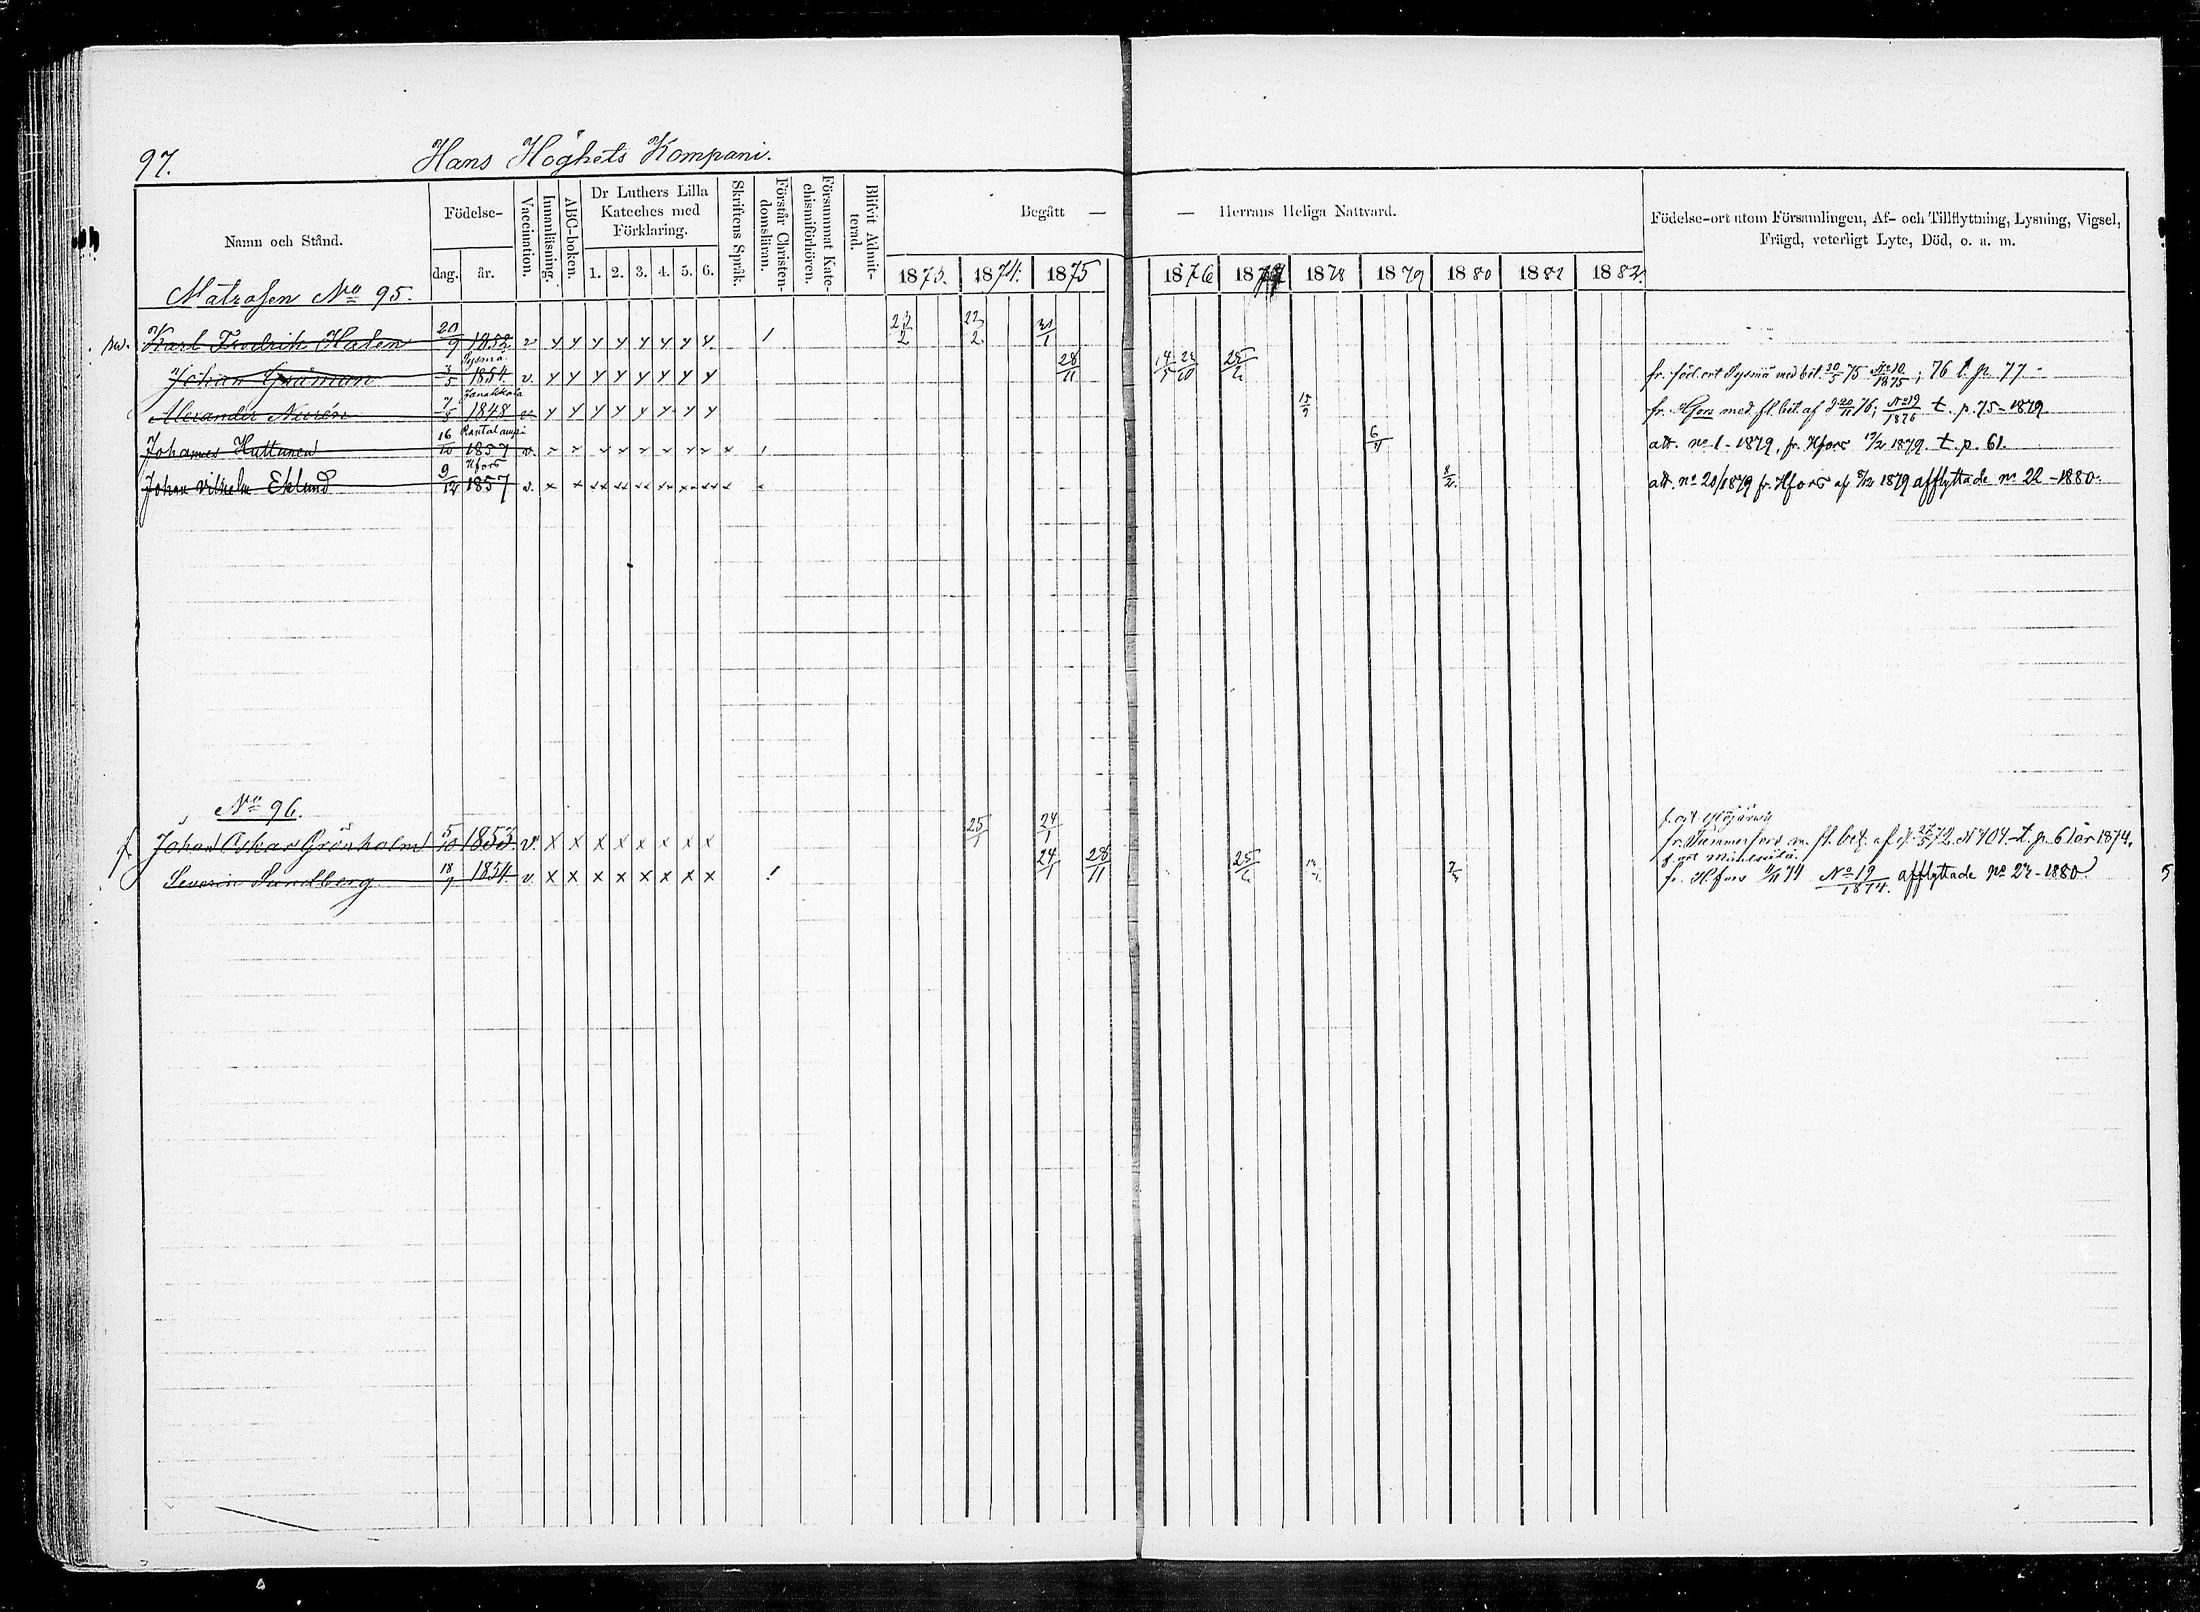 97. Hans Höghets Kompani.
Namn och Stånd.
Födelse-
dag. år.
Vaccination.
Innanläsning.
ABC-boken.
Dr Luthers Lilla
Kateches med
Förklaring.
1. 2. 3. 4. 5. 6.
Skriftens Språk.
Förstår Christen-
domsläran.
Försummat Kate-
chismiförhören.
Blifvit Admit-
terad.
Begått — — Herrans Heliga Nattvard.
1873. 1874. 1875 1876 1877 1878 1879 1880 1881 1882.
Födelse-ort utom Församlingen, Af- och Tillflyttning, Lysning, Vigsel,
Frägd, veterligt Lyte, Död, o. a. m.
Matrosen No 95.
Karl Fredrik 9 1852 v y y y y y y y y / 23/2 22/2 31/1
Sysmä
Johan 3/5 1854 v. y y y y y y y y 28/11 25/2 fr. föd. ort Sysmä med bet. 30/5 75 No 10/1875; 76 t. p. 77 -
Janakkala
Alexander 7/5 1848 y y y y y y y y 15/9 fr. Hfors med fl. bet. af 76; No 19/1876 t. p. 75-1879
Rautalampi
Johannes Huttunen 16/10 1857 v. 6/4 att. no 1-1879, fr. Hfors 1879. t. p. 61.
Hfors
Johan Vilhelm Eklund 9/12 1857 v. x x xx xx xx xx xx xxx 8/2 att. no 20/1879 fr. Hfors af 1879 afflyttade no 22-1880.
No 96.
Johan Oskar Grönholm 5/10 1853 v. x x x x x x x x 25/1 24/1 fr. Tammerfors m. fl. bet. af 72 N 404 t. p. 61 år 1874.
Severin Sundberg 18/9 1854 v. x x x x x x x x ! 24/1 28/11 25/2 fr. Hfors 74 No 19/1874. afflyttade no 27-1880
5